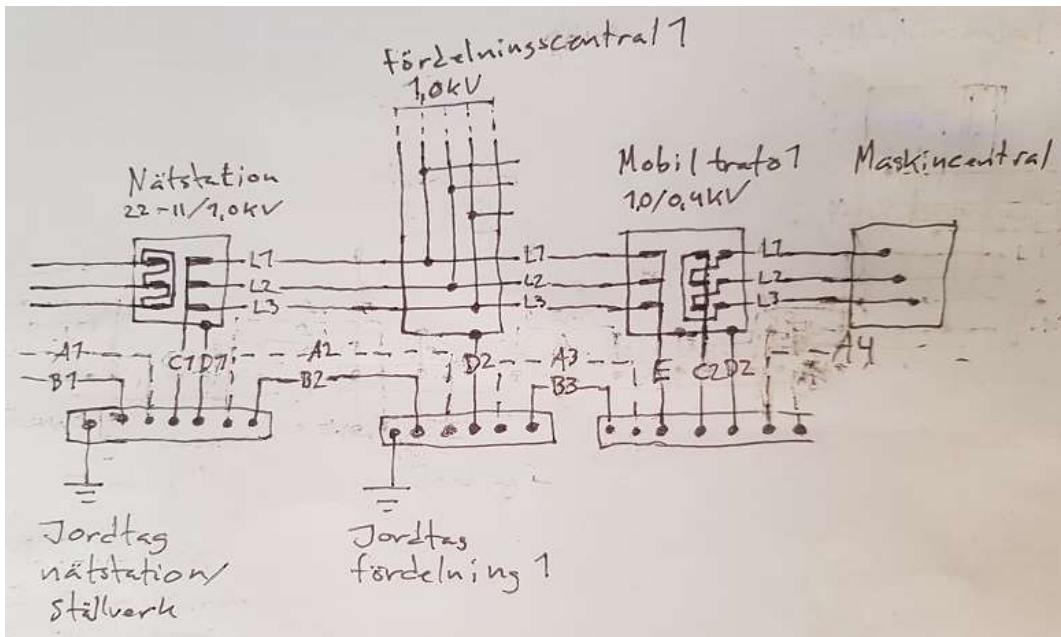 fördelningscentral 1
1,0kV
Nätstation
22-11/1,0kV
Mobil trafo 1
1,0/0,4kV
Maskincentral
L1
L1
L1
L2
L2
L2
L3
L3
L3
A1
C1
D1
A2
D2
A3
E
C2
D2
A4
B1
B2
B3
Jordtag
nätstation/
Ställverk
Jordtag
fördelning 1